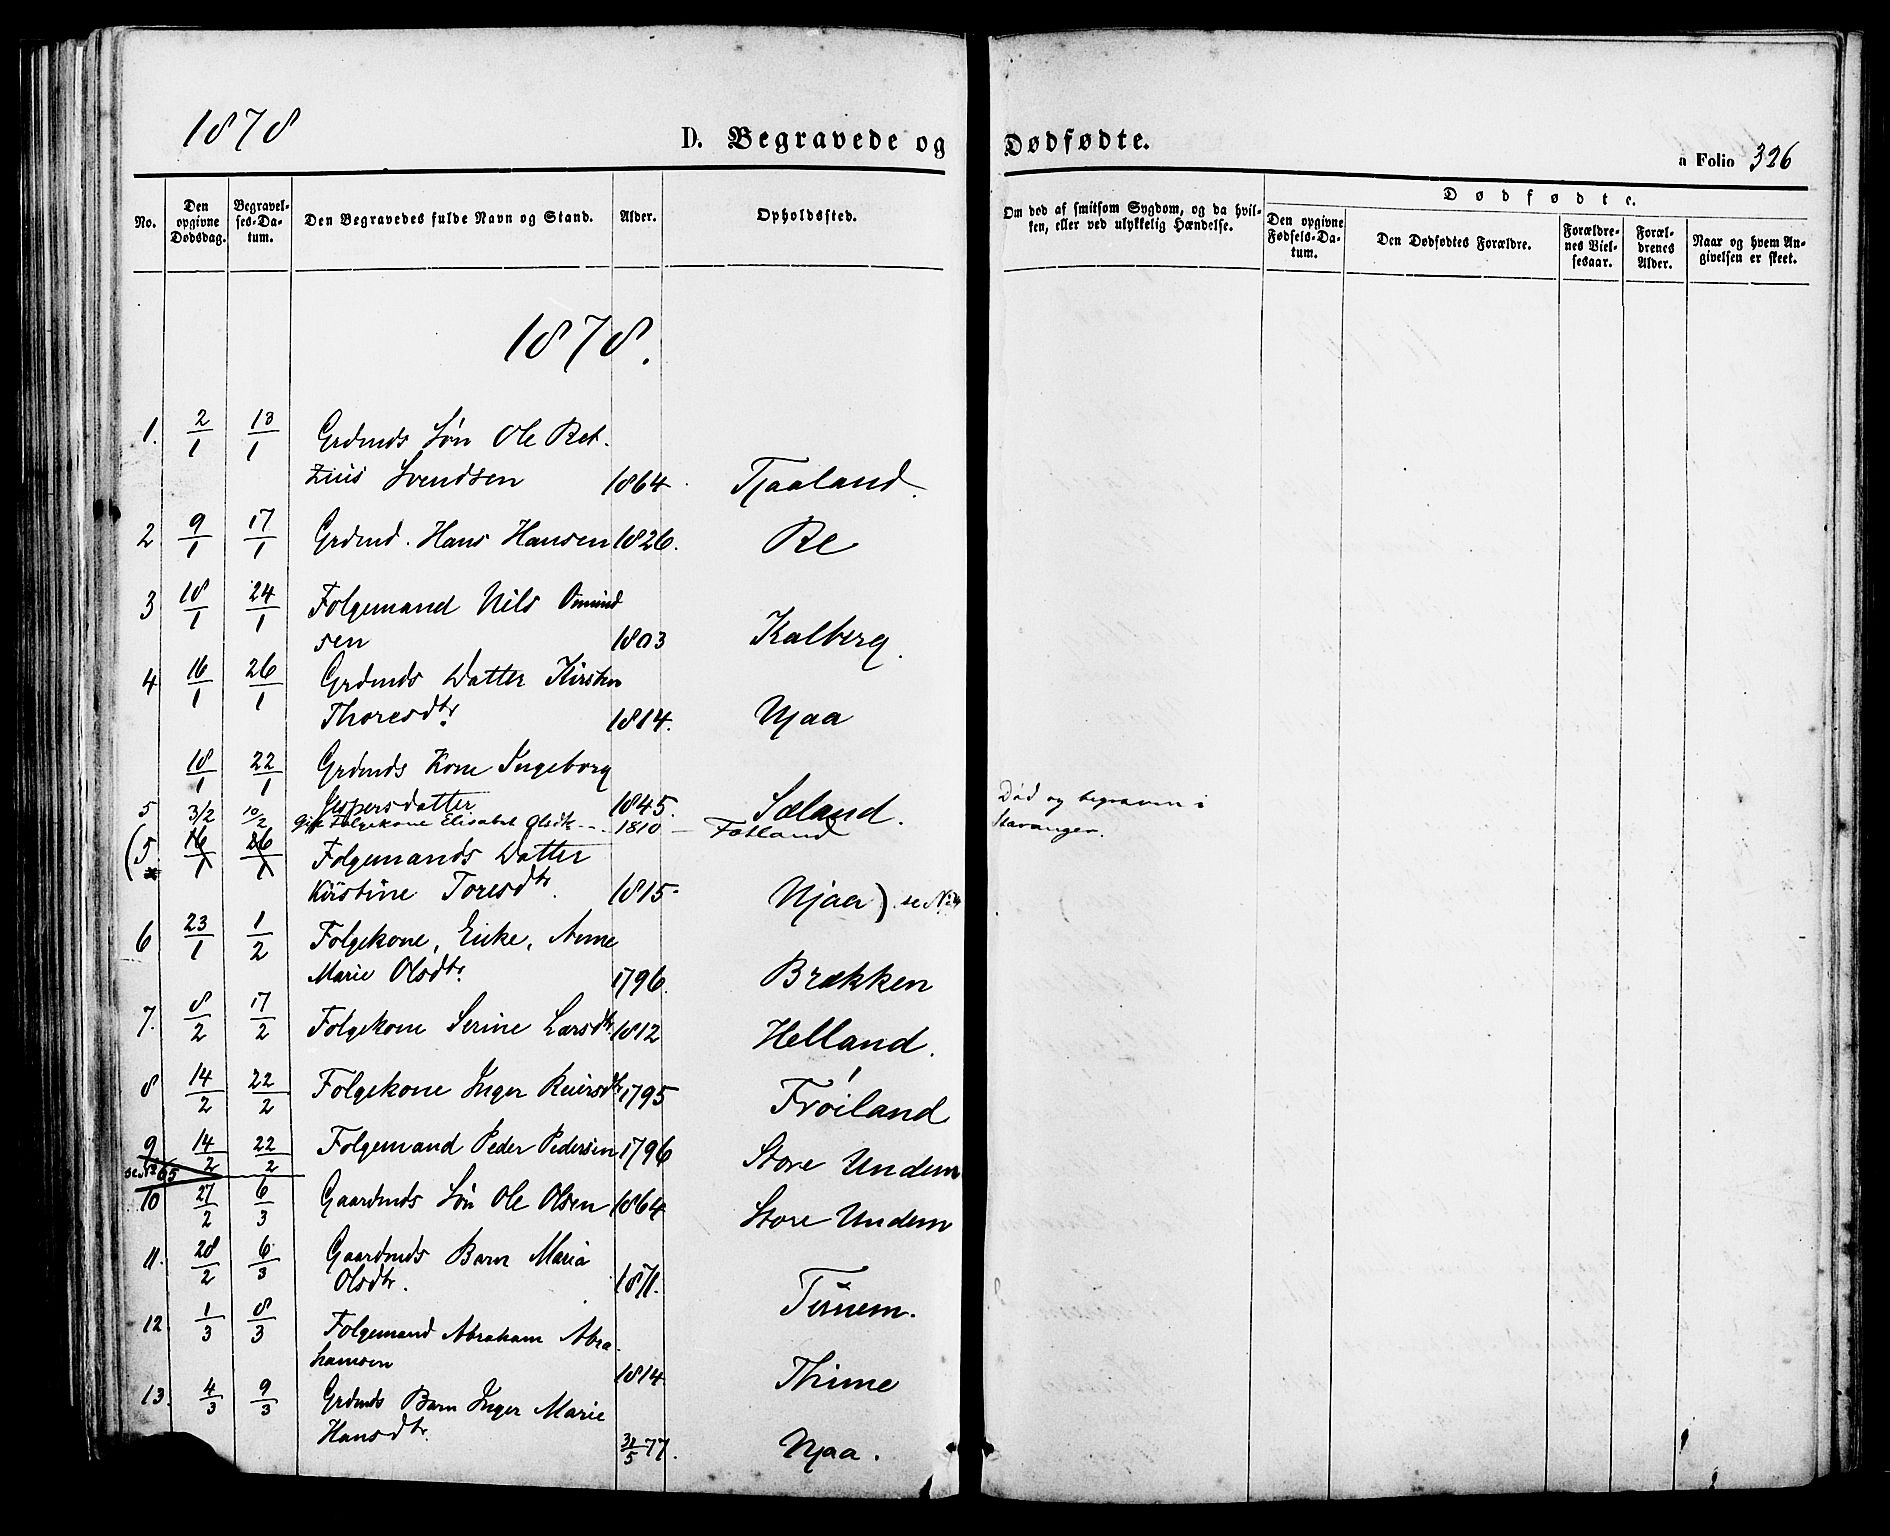 1878
D. Begravede og Dødfødte.
a Folio 326
No.
Den opgivne Dødsdag.
Begravelses-Datum.
Den Begravedes fulde Navn og Stand.
Alder.
Opholdssted.
Om død af smitsom Sygdom, og da hvilken, eller ved ulykkelig Hændelse.
Dødfødte.
Den opgivne Fødsels-Datum.
Den Dødfødtes Forældre.
Forældrenes Vielsesaar.
Forældrenes Alder.
Naar og hvem Angivelsen er skeet.
1878.
1. 2/1 18/1 Grdmds Søn Ole Bet-
zius Svendsen 1864. Tjaaland.
2 9/1 17/1 Grdmd. Hans Hansen 1826. Re
3 18/1 24/1 Folgemand Nils Omund
sen 1803 Kalberg.
4 16/1 26/1 Grdmds Datter Kirsten
Thoresdtr. 1814. Njaa
18/1 22/1 Grdmds Kone Ingeborg
Jespersdatter 1845. Sæland. Død og begraven i
Stavanger.
5 3/2 10/2 gift Folgekone Elisabet Olsdtr --- 1810 — Fotland
(5. 16/1 26/1 Folgemands Datter
Kirstine Toresdtr. 1815. Njaa) se No 4
6 23/1 1/2 Folgekone, Enke, Anne
Marie Olsdtr. 1796. Brækken
7. 8/2 17/2 Folgekone Serine Larsdtr. 1812 Helland.
8 14/2 22/2 Folgekone Inger Reiersdtr 1795 Frøiland
9 14/2 22/2 Folgemand Peder Pedersen 1796 Store Undem
se No 65
10 27/2 6/3 Gaardmds Søn Ole Olsen 1864 Store Undem
11. 28/2 6/3 Gaardmds Barn Maria
Olsdtr. 1871. Tunem.
12 1/3 8/3 Folgemand Abraham Abra-
hamsen 1814. Thime
13. 4/3 9/3 Grdmds Barn Inger Marie
Hansdtr. 31/5 77. Njaa.